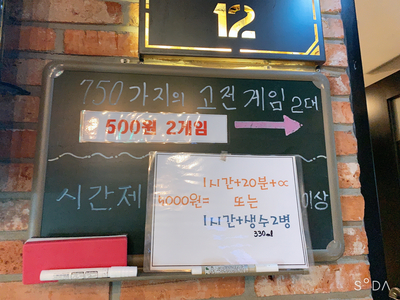 12
750가지의 고전게임 2대
500원 2게임
시간제
1시간+20분+∝
4000원= 또는
이상
1시간+생수2병
330ml
SODA